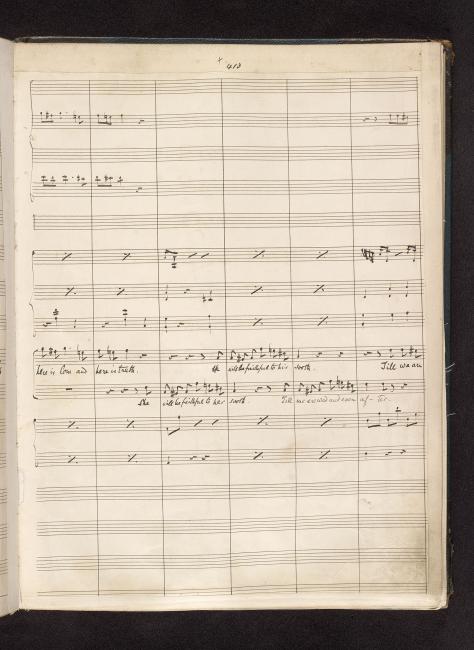 413
here is love and here is truth. He will be faithful to his sooth. Till we are
She will be faithful to her sooth Till we are wed and even af - ter.